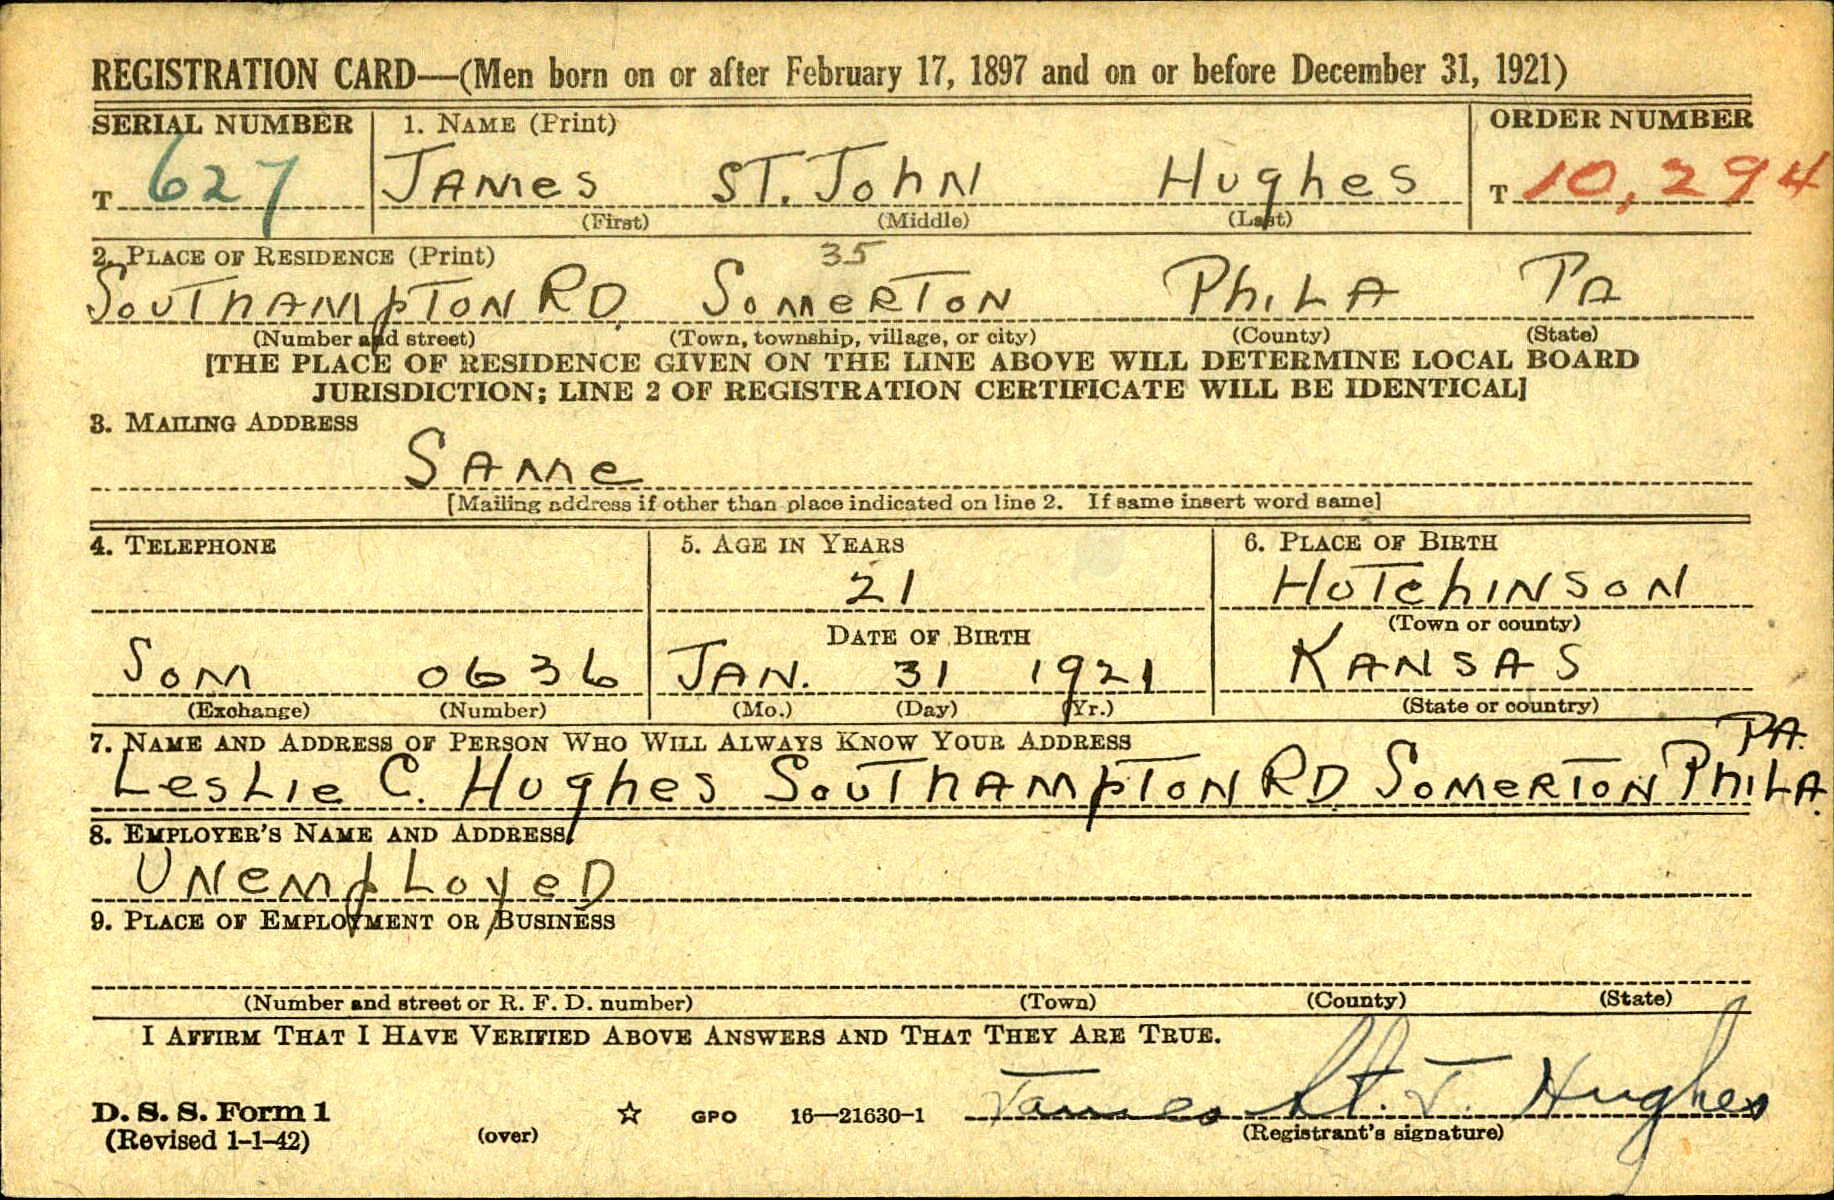 REGISTRATION CARD—(Men born on or after February 17, 1897 and on or before December 31, 1921)
SERIAL NUMBER 1. NAME (Print) ORDER NUMBER
T 627 JAMes ST. JohN Hughes T 10,294
(First) (Middle) (Last)
2. PLACE OF RESIDENCE (Print) 35
SouThAMpToN RD. SoMeRToN PhiLA PA
(Number and street) (Town, township, village, or city) (County) (State)
[THE PLACE OF RESIDENCE GIVEN ON THE LINE ABOVE WILL DETERMINE LOCAL BOARD
JURISDICTION; LINE 2 OF REGISTRATION CERTIFICATE WILL BE IDENTICAL]
3. MAILING ADDRESS
SAMe
[Mailing address if other than place indicated on line 2. If same insert word same]
4. TELEPHONE 5. AGE IN YEARS 6. PLACE OF BIRTH
21 HuTchINSoN
DATE OF BIRTH (Town or county)
SoM 0636 JAN. 31 1921 KANSAS
(Exchange) (Number) (Mo.) (Day) (Yr.) (State or country)
7. NAME AND ADDRESS OF PERSON WHO WILL ALWAYS KNOW YOUR ADDRESS PA.
LesLie C. Hughes SouThAMpToN RD. SoMeRToN PhiLA.
8. EMPLOYER'S NAME AND ADDRESS
UNeMpLoyeD
9. PLACE OF EMPLOYMENT OR BUSINESS
(Number and street or R. F. D. number) (Town) (County) (State)
I AFFIRM THAT I HAVE VERIFIED ABOVE ANSWERS AND THAT THEY ARE TRUE.
D. S. S. Form 1 ☆ GPO 16—21630-1 James St. J. Hughes
(Revised 1-1-42) (over) (Registrant's signature)